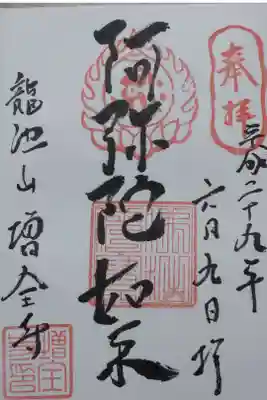 奉拝
平成二十九年
六月九日拝
阿弥陀如来
龍池山 増全寺
増全寺印